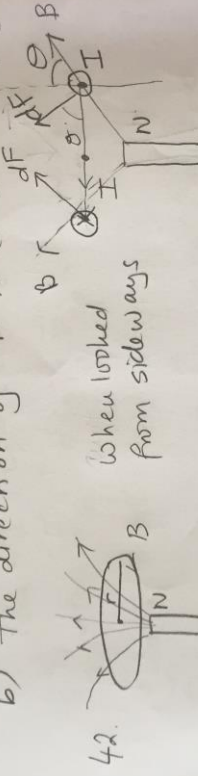 b) The direction of
42.
B
N
When looked
from sideways
B
dF
I
I
N
θ
dF
θ
B